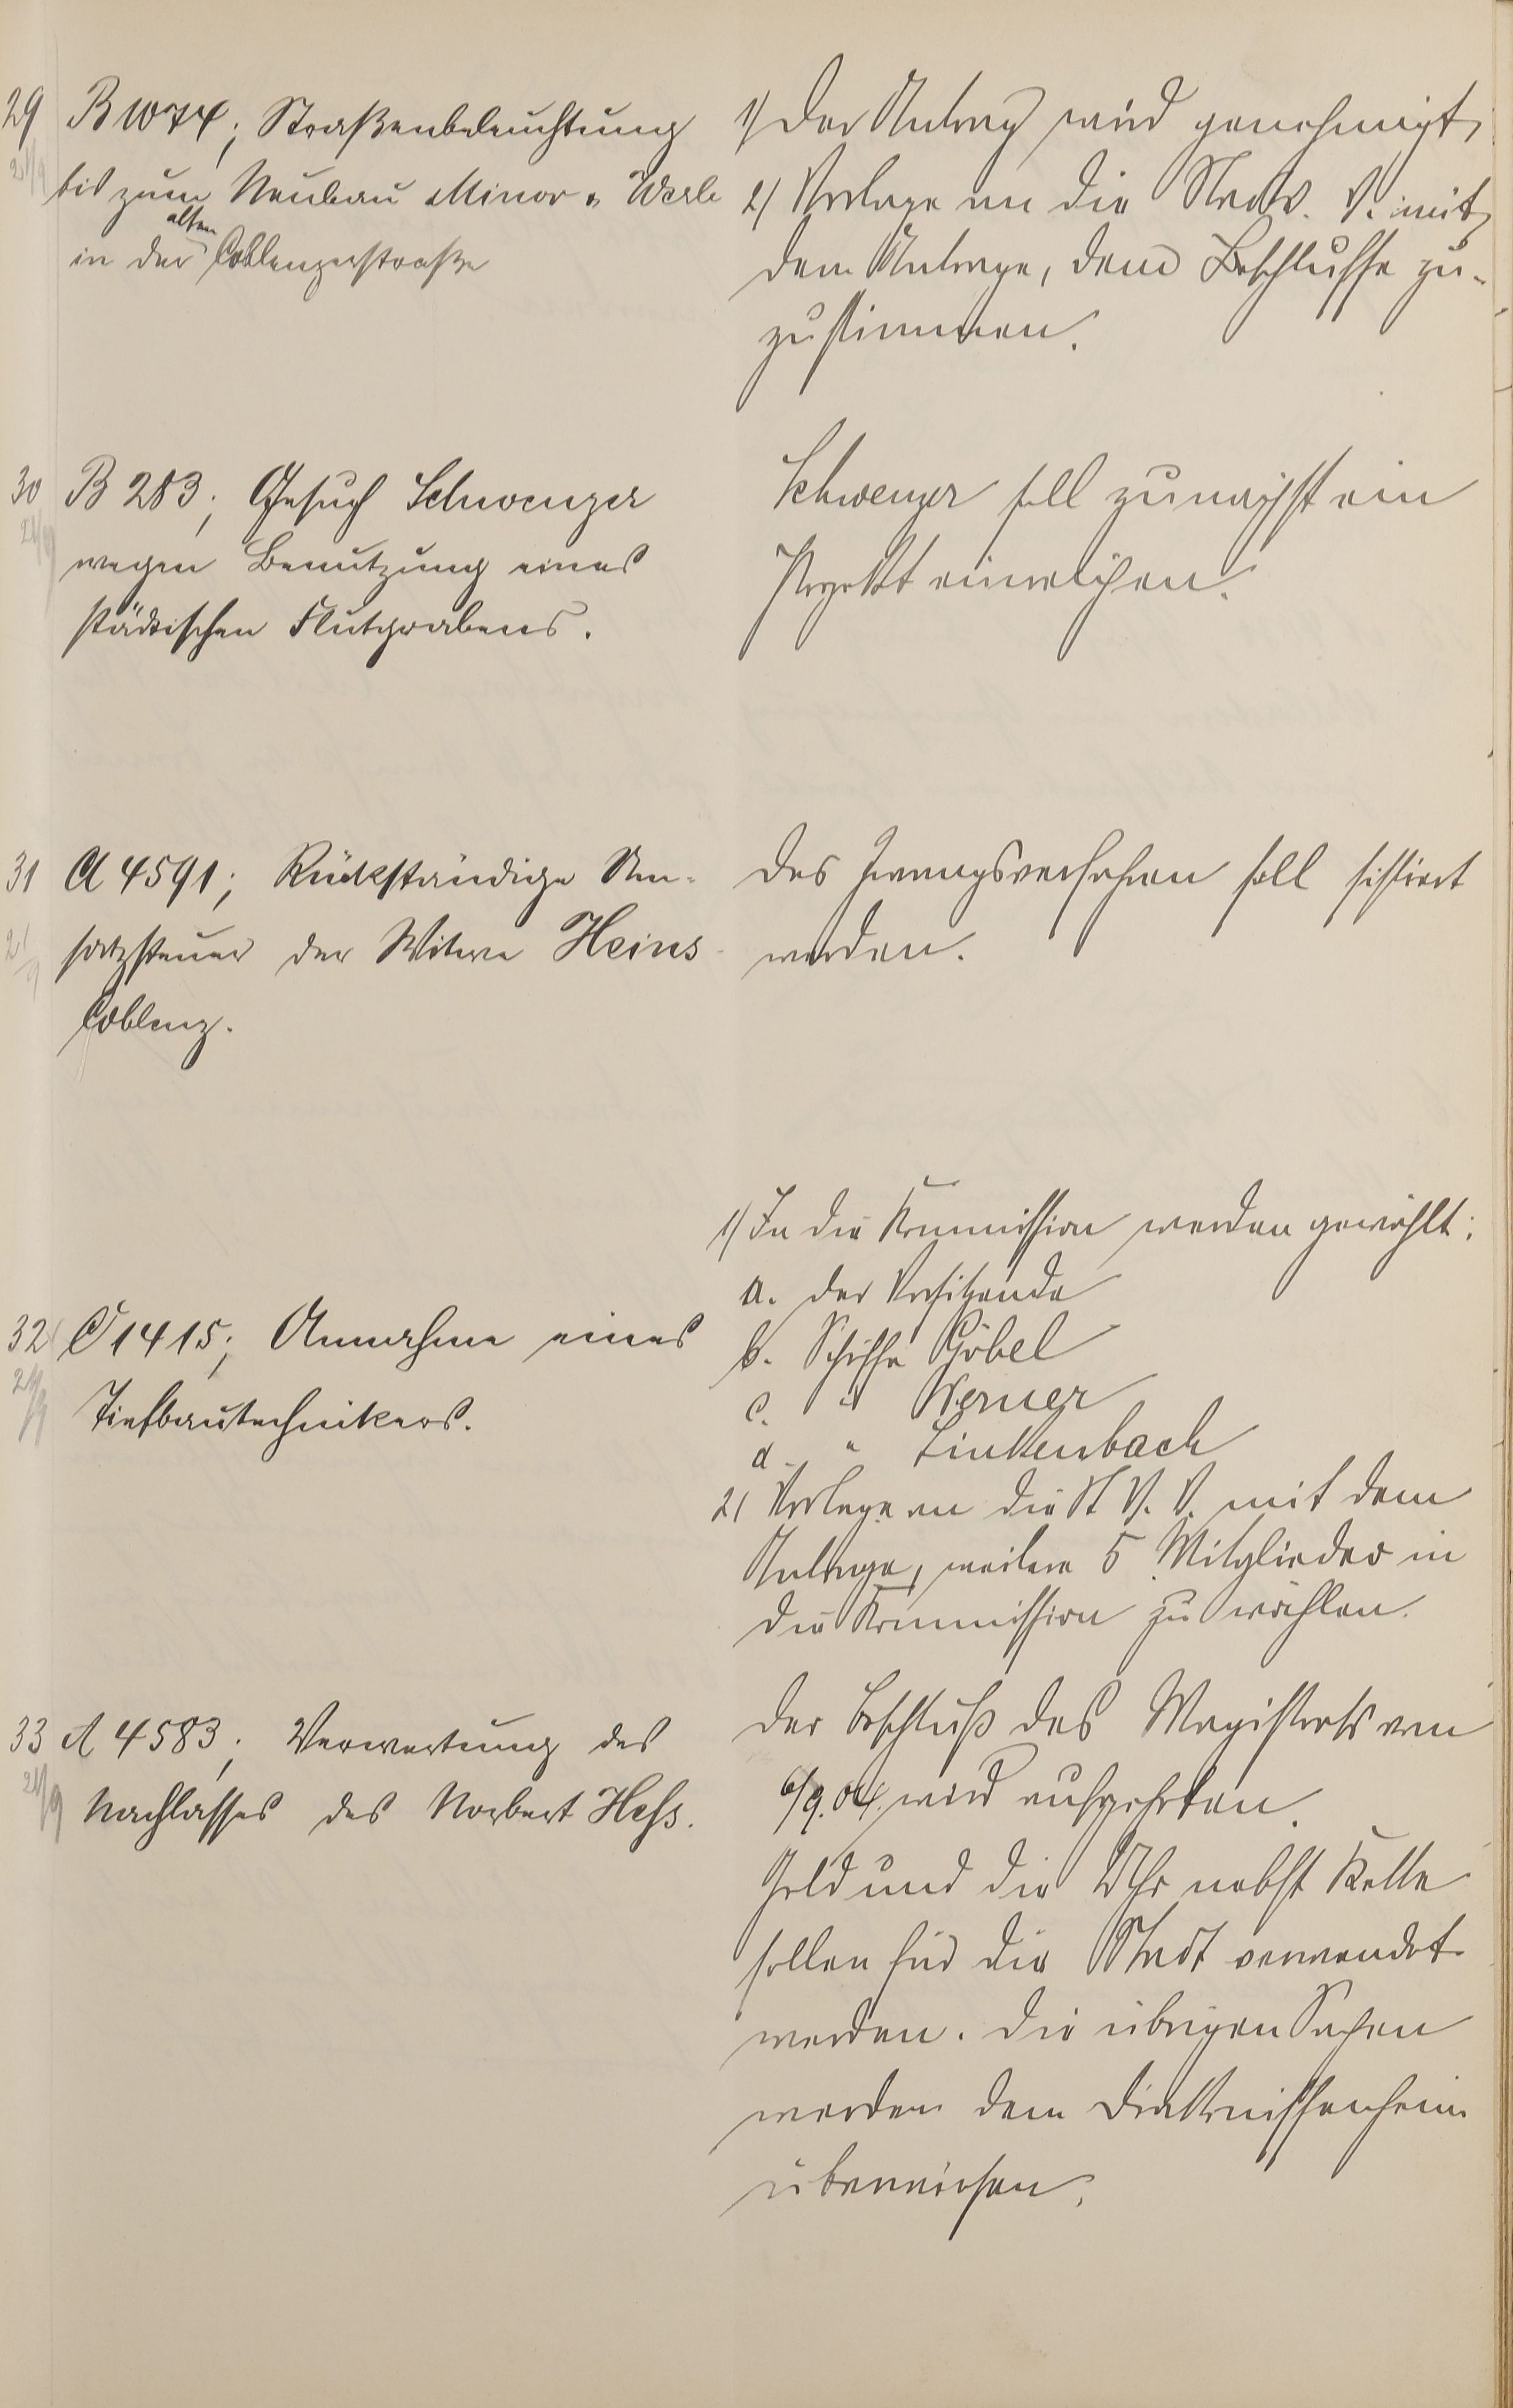 29 B 1074; Straßenbeleuchtung
21/9 bis zum Neubau Minor u. Werle
alten
in der Coblenzerstraße
1) Der Antrag wird genehmigt,
2) Vorlage an die Stadtv. V. mit
dem Antrage, dem Beschlusse zu-
zustimmen.
30 B 283; Gesuch Schwenzer
21/9 wegen Benutzung eines
städtischen Flutgrabens.
Schwenzer soll zunächst ein
Projekt einreichen.
31 A 4591; Rückständige Um-
21/9 satzsteuer der Witwe Heins-
Coblenz.
Das Zwangsverfahren soll sistiert
werden.
32 C 1415; Annahme eines
21/9 Tiefbautechnikers.
1) In die Kommission werden gewählt:
a. der Vorsitzende
b. Schöffe Göbel
c. " Werner
d. " Linkenbach
2) Vorlage an die St. V. V. mit dem
Antrage, weitere 5 Mitglieder in
die Kommission zu wählen.
33 A 4583; Verwertung des
21/9 Nachlasses des Norbert Heß.
Der Beschluß des Magistrats vom
6/9. 04. wird aufgehoben.
Geld und die Uhr nebst Kette
sollen für die Stadt verwendet
werden. Die übrigen Sachen
werden dem Diakonissenheim
überwiesen.